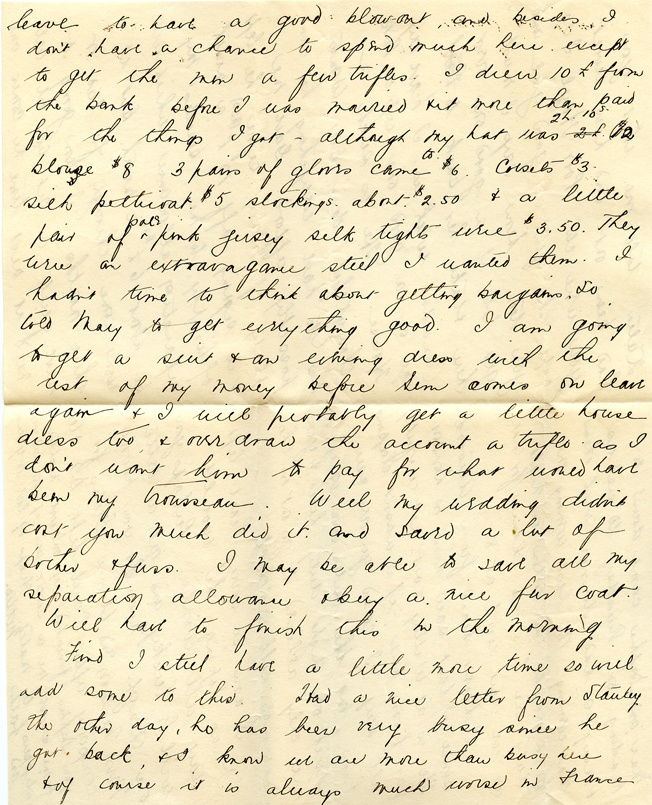 leave to have a good blowout, and besides I
don't have a chance to spend much here except
to get the men a few trifles. I drew 10 £ from
the bank before I was married & it more than paid
for the things I got – although my hat was 2£ 10s. $12
blouse $8 3 pairs of gloves came to $6. Corsets $3.
silk petticoat $5 stockings about $2.50 & a little
pair of pale pink jersey silk tights were $3.50. They
were an extravagance still I wanted them. I
hadn't time to think about getting bargains. So
told May to get everything good. I am going
to get a suit & an evening dress with the
rest of my money before Sem comes on leave
again & I will probably get a little house
dress too, & overdraw the account a trifle as I
don't want him to pay for what would have
been my trousseau. Well my wedding didn't
cost you much did it and saved a lot of
bother & fuss. I may be able to save all my
separation allowance & buy a nice fur coat.
Will have to finish this in the morning
Find I still have a little more time so will
add some to this. Had a nice letter from Stanley
the other day, he has been very busy since he
got back, & I know we are more than busy here
& of course it is always much worse in France